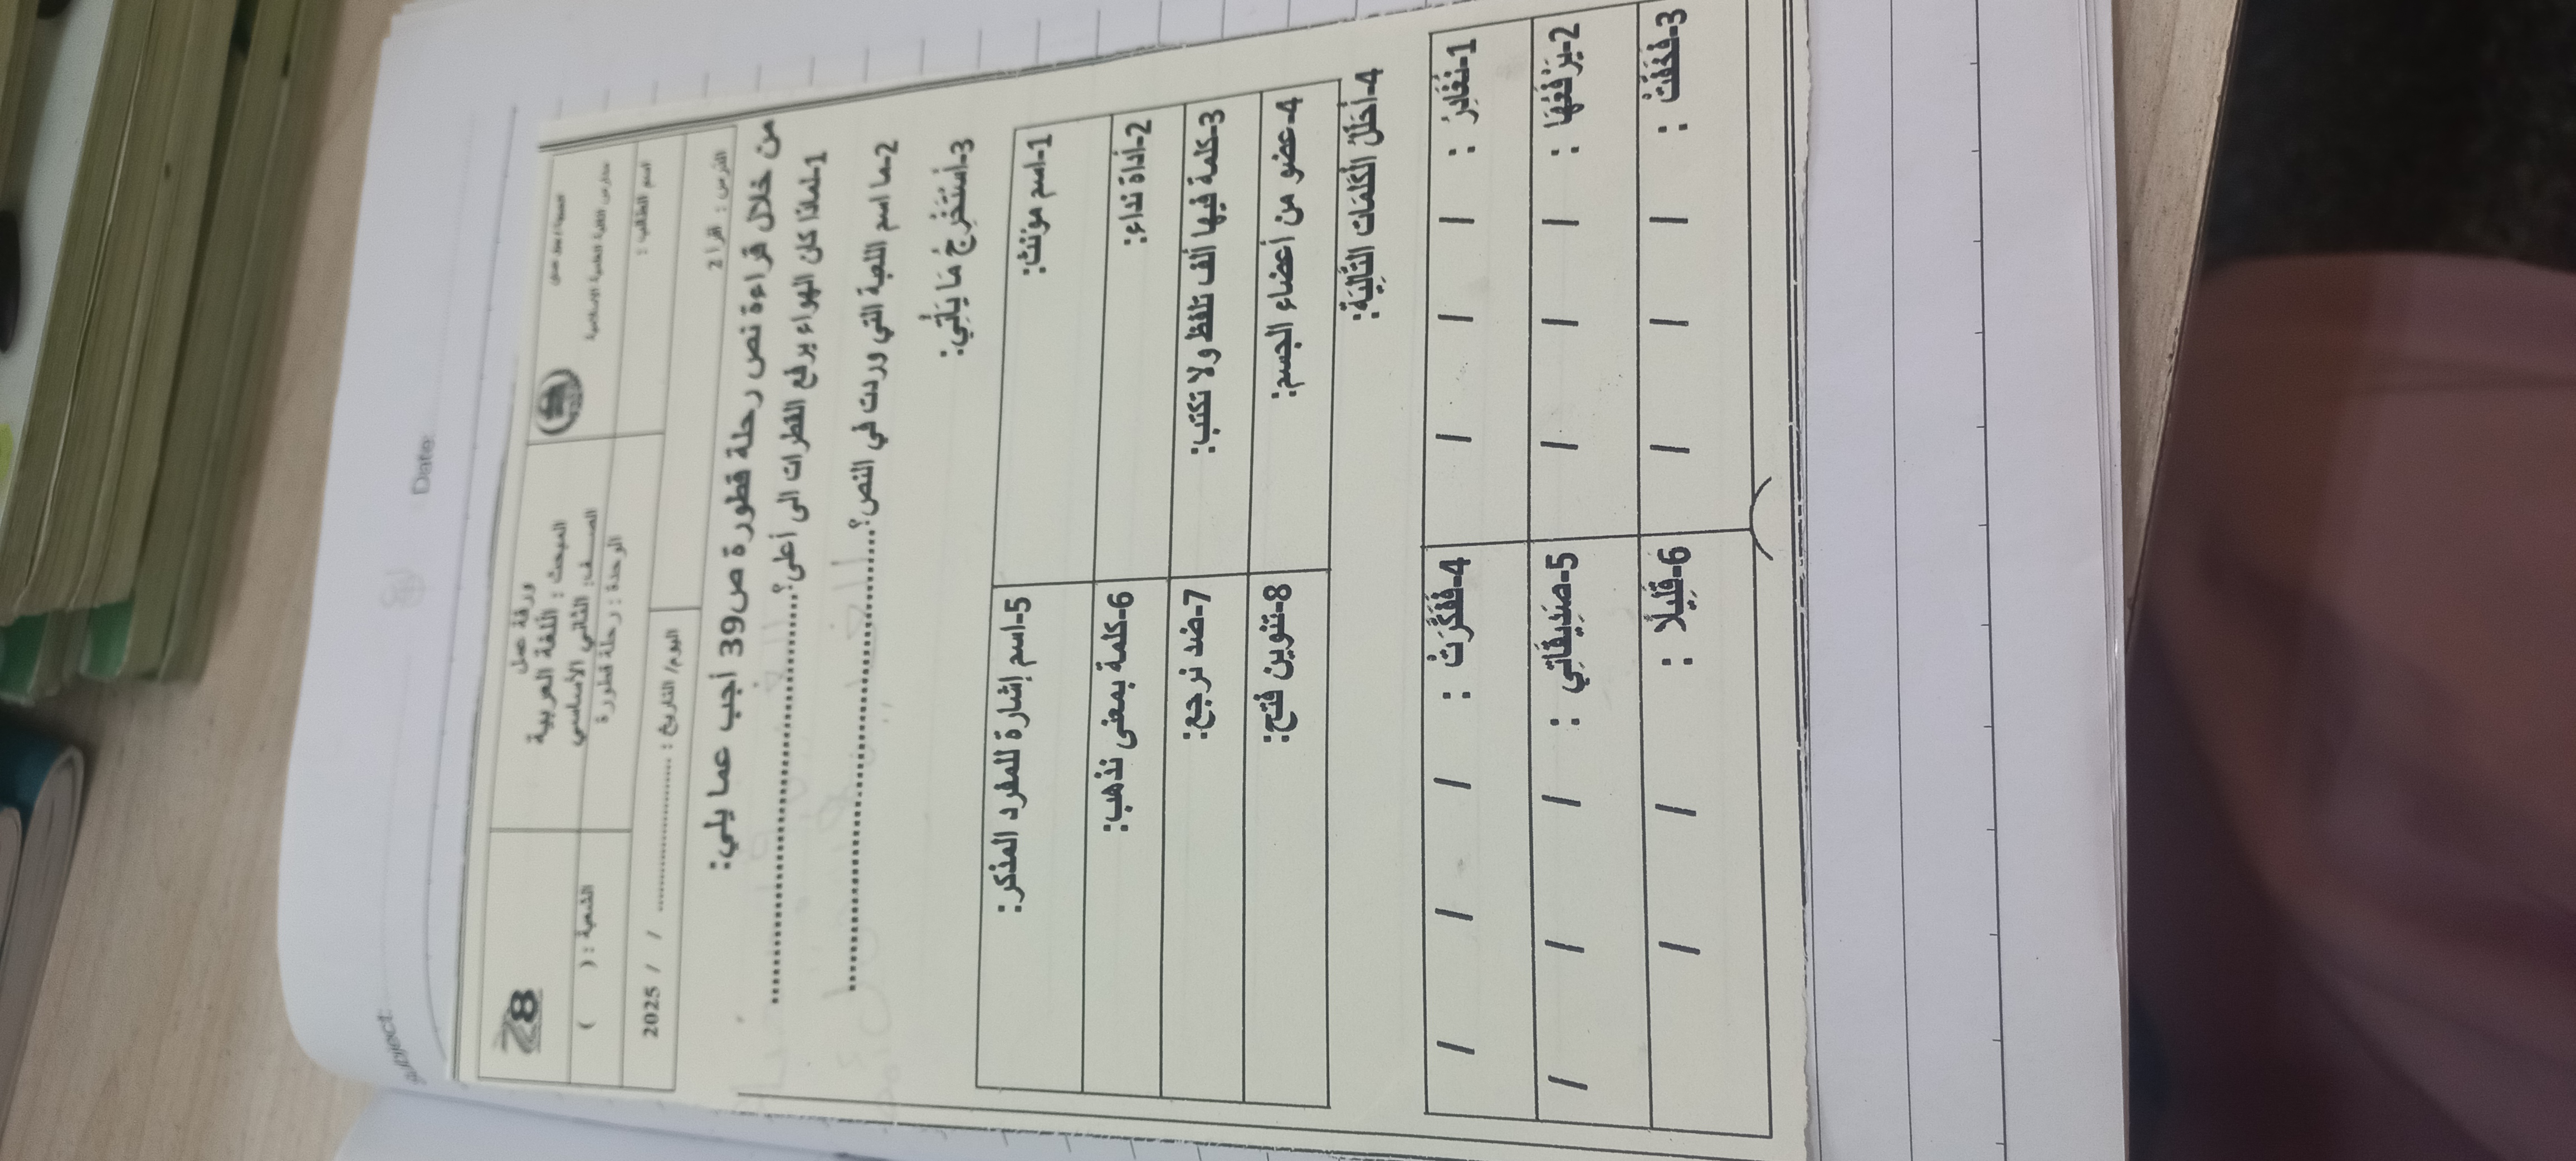 Subject:
Date:
ورقة عمل
المبحث : اللغة العربية
الصف: الثاني الأساسي
الوحدة : رحلة قطورة
28
الشعبة : ( )
اسم الطالب :
اليوم/ التاريخ : .................. / / 2025
الدرس : اقرأ 2
من خلال قراءة نص رحلة قطورة ص39 أجب عما يلي:
1-لماذا كان الهواء يرفع القطرات الى أعلى؟............................................
2-ما اسم اللعبة التي وردت في النص؟............................................
3-أَسْتَخْرِجُ مَا يَأْتِي:
1-اسم مؤنث:
5-اسم إشارة للمفرد المذكر:
2-أداة نداء:
6-كلمة بمعنى نذهب:
3-كلمة فيها ألف تلفظ ولا تكتب:
7-ضد نرجع:
4-عضو من أعضاء الجسم:
8-تنوين فتح:
4-أحَلّلُ الْكَلِمَات التَّالِيَة:
1-نُغَادِرُ : / / /
4-فَفَكَّرَتْ : / / /
2-يَرْفَعُهَا : / / /
5-صَدِيقَاتِي : / / /
3-فَخَفَّتْ : / / /
6-قَلِيلًا : / /